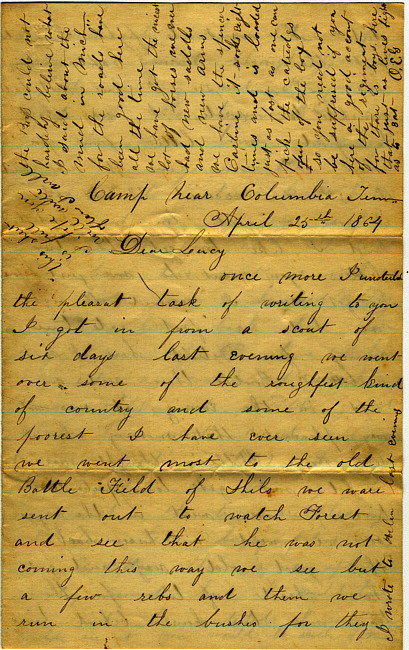 Camp near Columbia Tenn
April 25th 1864
Dear Lucy
once more I
the pleasat task of writing to you
I got in from a scout of
six days last evening we went
over some of the roughfest kind
of country and some of the
poorest I have ever seen
we went most to the old
Battle Field of Shilo we ware
sent out to watch Forest
and see that he was not
coming this way we see but
a few rebs and them we
run in the bushes for they
I wrote to last evening
the boys could not
hardly believe what
I said about the
mud in Mich
for the roads have
been good here
all the time
we have got the nicest
lot of horses and we
had new saddles
and new arms
we have the spencer
Carbine it shoots
times and is loaded
just as fast as one can
pick the catridgs
out of the box
so you need not
be suppused if you
hear a good acount
of this regiment
for there is boys here
that just as lives fight
as to eat O.E.G